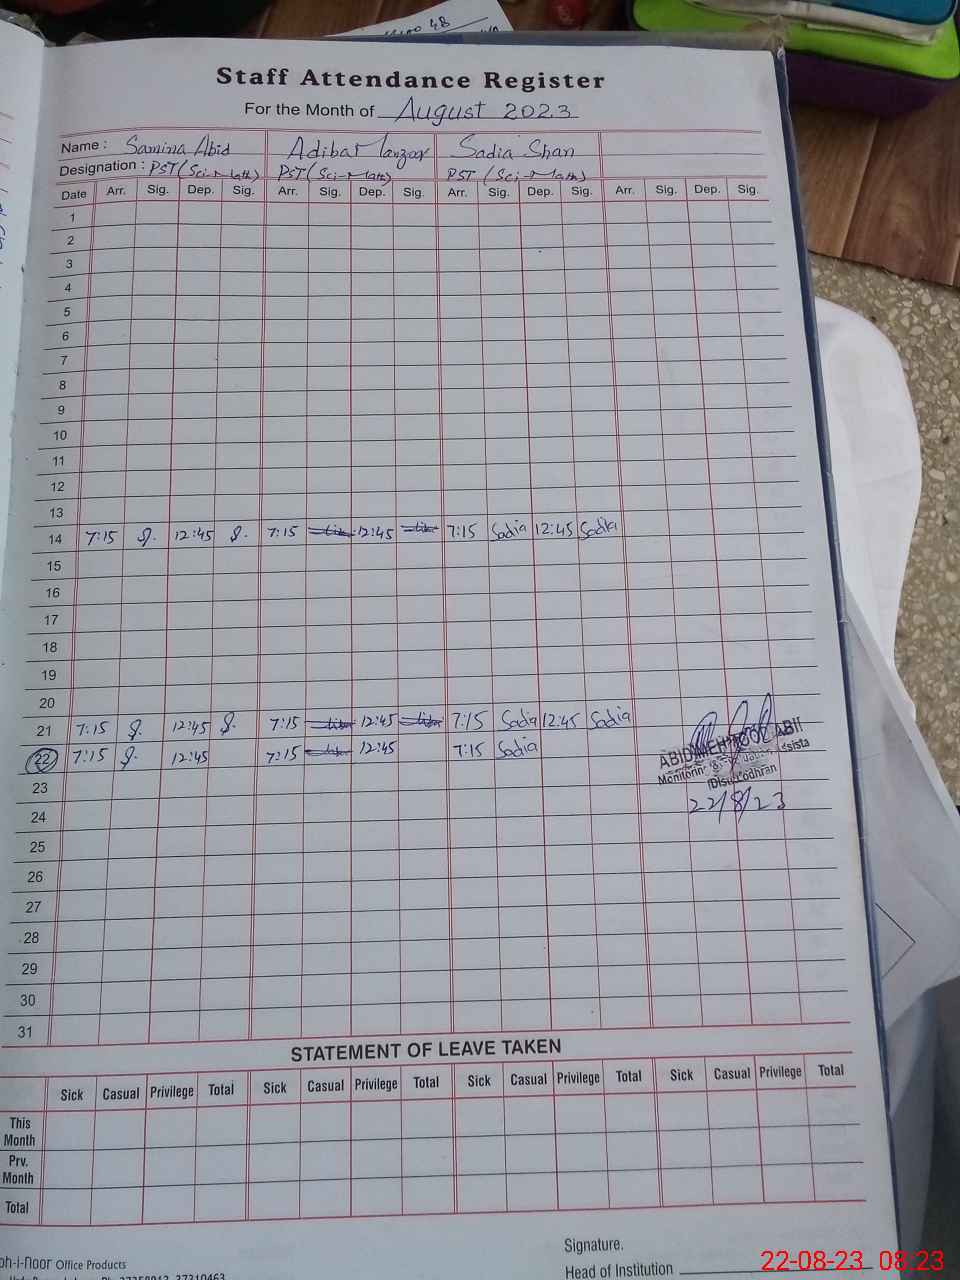 Staff Attendance Register
For the Month of August 2023
Name : Samina Abid Adiba Manzoor Sadia Shan
Designation : PST (Sci-Math) PST (Sci-Math) PST (Sci-Math)
Date Arr. Sig. Dep. Sig. Arr. Sig. Dep. Sig. Arr. Sig. Dep. Sig. Arr. Sig. Dep. Sig.
1
2
3
4
5
6
7
8
9
10
11
12
13
14 7:15 12:45 7:15 12:45 7:15 Sadia 12:45 Sadia
15
16
17
18
19
20
21 7:15 12:45 7:15 12:45 7:15 Sadia 12:45 Sadia
22 7:15 12:45 7:15 12:45 7:15 Sadia
23
24
25
26
27
28
29
30
31
22/8/23
STATEMENT OF LEAVE TAKEN
Sick Casual Privilege Total Sick Casual Privilege Total Sick Casual Privilege Total Sick Casual Privilege Total
This Month
Prv. Month
Total
Office Products
Signature.
Head of Institution
22-08-23 08:23